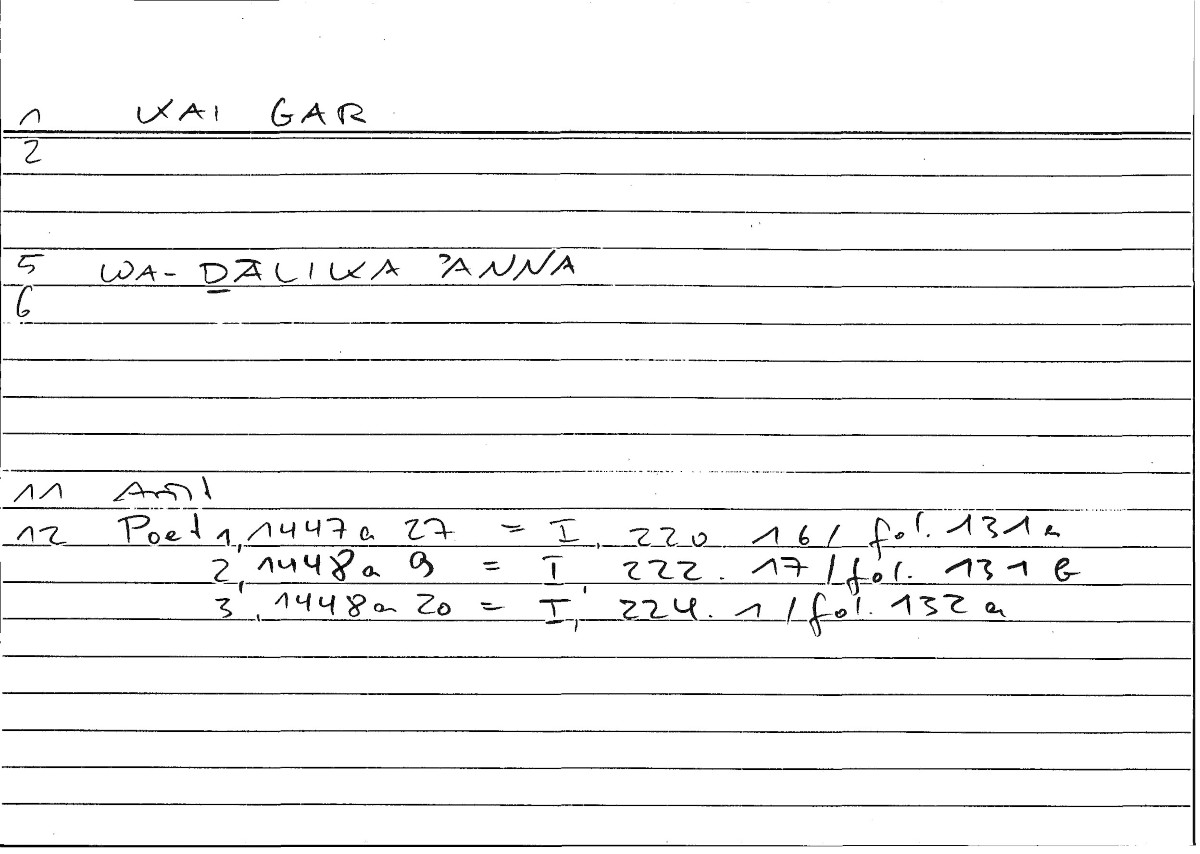 1 KAI GAR
2
5 WA-ḎĀLIKA ʾANNA
6
11 Arist
12 Poet 1, 1447a 27 = I, 220. 16 / fol. 131a
2, 1448a 9 = I, 222. 17 / fol. 131b
3, 1448a 20 = I, 224. 1 / fol. 132a